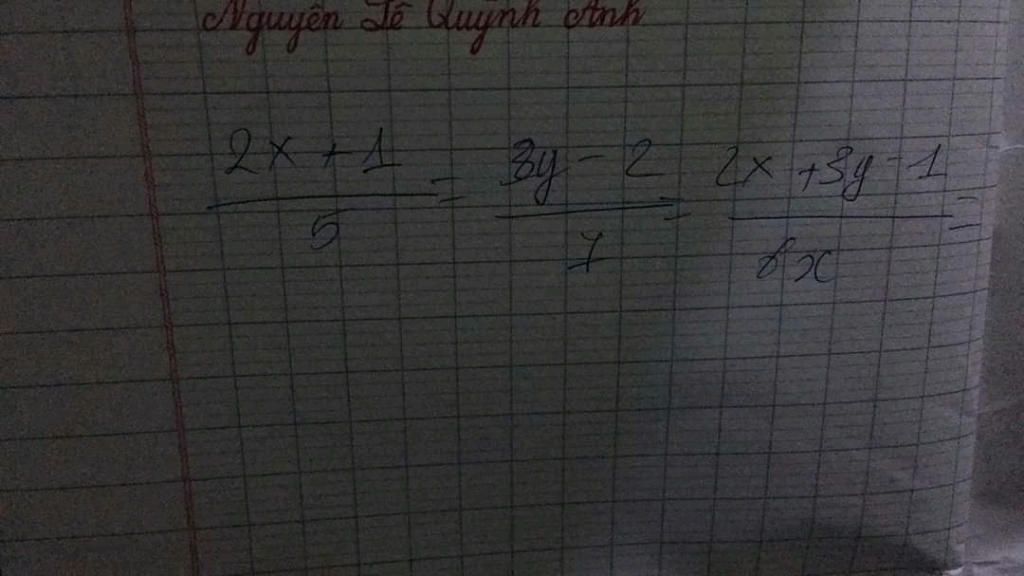 Nguyễn Tố Quỳnh Anh
2x + 1 = 3y - 2 = 2x + 3y - 1 =
5 7 6x